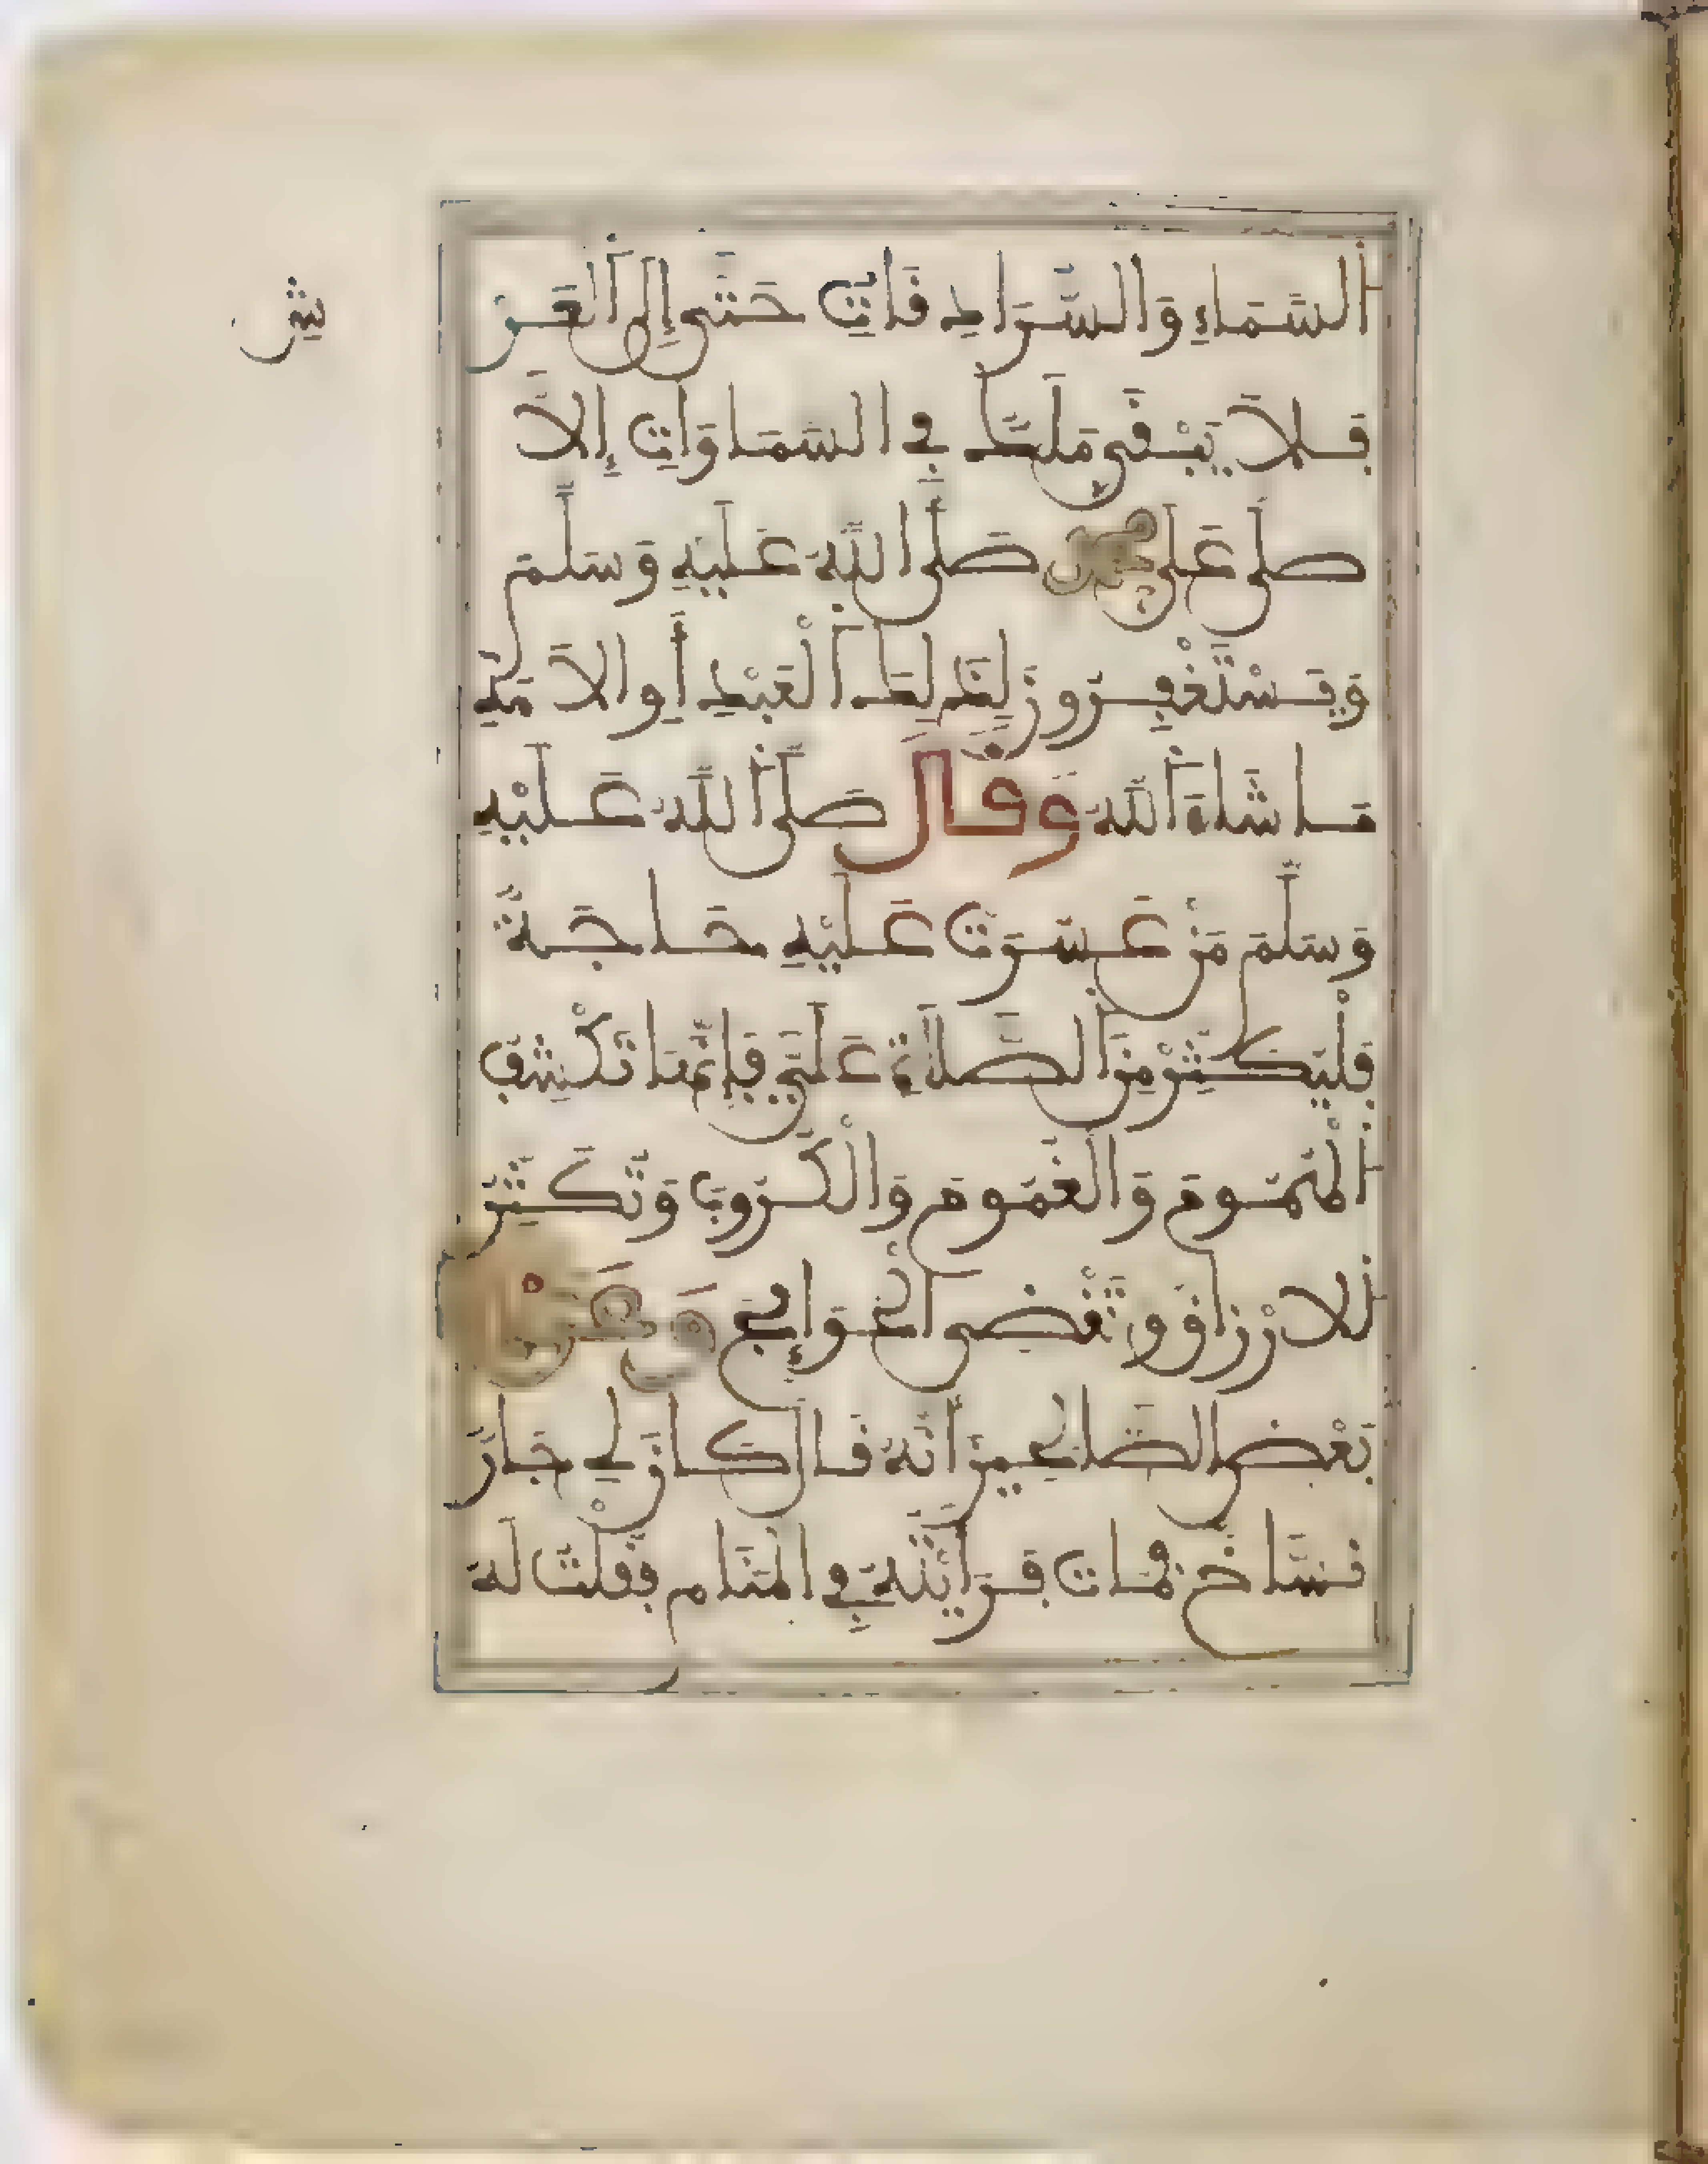 السَّمَاءِ وَالسُّرَادِقَاتِ حَتَّى إِلَى الْعَرْ
شِ
فَلاَ يَبْقَى مَلَكٌ فِي السَّمَاوَاتِ إِلاَّ
صلى عَلَى مُحَمَّدٍ صَلَّى اللَّهُ عَلَيْهِ وَسَلَّمَ
وَيَسْتَغْفِرُونَ لِذَلِكَ الْعَبْدِ أَوِ الاَمَةِ
مَا شَاءَ اللَّهُ وَقَالَ صَلَّى اللَّهُ عَلَيْهِ
وَسَلَّمَ مَنْ عَسُرَتْ عَلَيْهِ حَاجَةٌ
فَلْيُكْثِرْ مِنَ الصَّلَاةِ عَلَيَّ فَإِنَّهَا تَكْشِفُ
الْهُمُومَ وَالْغُمُومَ وَالْكُرُوبَ وَتُكَثِّرُ
الاَرْزَاقَ وَتَقْضِي الْحَوَائِجَ وَعَنْ
بَعْضِ الصَّالِحِينَ أَنَّهُ قَالَ كَانَ لِي جَارٌ
نَسَّاخٌ فَمَاتَ فَرَأَيْتُهُ فِي الْمَنَامِ فَقُلْتُ لَهُ